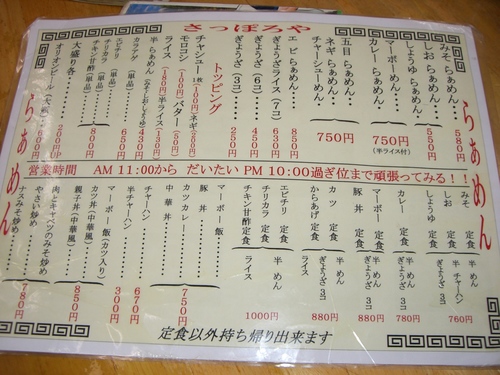 さっぽろや
らぁめん
みそ らぁめん・・・・580円
しお らぁめん・・・
しょうゆ らぁめん・550円
マーボーめん
カレー らぁめん・750円
(半ライス付)
五目 らぁめん・
ネギ らぁめん・
チャーシューめん・750円
エビ らぁめん・・・・850円
ぎょうざライス(7コ)630円
ぎょうざ(6コ)・・・450円
ぎょうざ(3コ)・・・250円
トッピング
チャシュー1枚(100円)ネギ(200円)
モロコシ(100円)バター(50円)
ライス(180円)半ライス(150円)
半 らぁめん(みそ・しお・しょうゆ)・350円
カラアゲ(単品)・・・430円
エビチリ(単品)・・・650円
チリカラ(単品)
チキン甘酢(単品)・・800円
大盛り 各・・・200円
オリオンビール(大瓶)
らぁめん
営業時間 AM 11:00から だいたい PM 10:00過ぎ位まで頑張ってみる!!
みそ 定食
しお 定食
しょうゆ 定食 半チャーハン ぎょうざ 3コ 760円
カレー 定食 半 めん ぎょうざ 3コ 780円
マーボー 定食
豚 丼 定食 半 めん ぎょうざ 3コ 880円
カツ 定食 半 めん ぎょうざ 3コ
からあげ 定食 ライス 880円
エビチリ 定食
チリカラ 定食 半 めん ぎょうざ 3コ
チキン甘酢定食 ライス 1000円
マーボー 飯・・・・
豚 丼・・・・
カツカレー・・・・
中 華 丼・・・・750円
チャーハン・・・・670円
半チャーハン・・・300円
マーボー 飯(カツ入り)
カツ丼(中華風)・・・
親子丼(中華風)・・・850円
肉とキャベツのみそ炒め
やさい炒め・・・・
ナスみそ炒め・・・・780円
定食以外持ち帰り出来ます